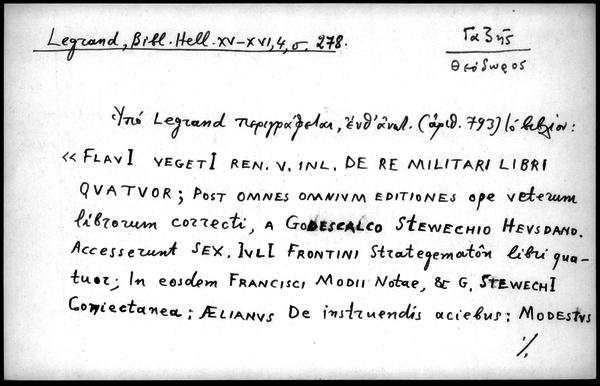 Legrand, Bibl. Hell. XV-XVI, 4, σ. 278.
Γαζῆς
Θεόδωρος
Ὑπό Legrand περιγράφεται, ἔνθ' ἀνωτ. (ἀριθ. 793) τό βιβλίον:
«FLAVI VEGETI REN. V. INL. DE RE MILITARI LIBRI
QVATVOR; POST OMNES OMNIVM EDITIONES ope veterum
librorum correcti, A GODESCALCO STEWECHIO HEVSDANO.
Accesserunt SEX. IVLI FRONTINI Strategematôn libri qua-
tuor; In eosdem FRANCISCI MODII Notae, & G. STEWECHI
Coniectanea; ÆLIANVS De instruendis aciebus; MODESTVS
./.